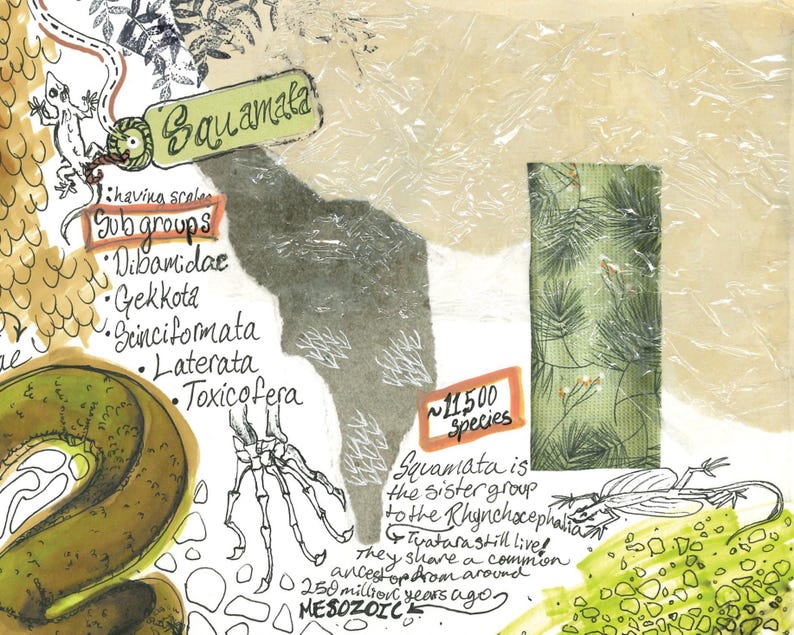 Squamata
: having scales
Subgroups
· Dibamidae
· Gekkota
· Scinciformata
· Laterata
· Toxicofera
ae
~11,500
species
Squamata is
the sister group
to the Rhynchocephalia
Tuatara still live!
They share a common
ancestor from around
250 million years ago
MESOZOIC